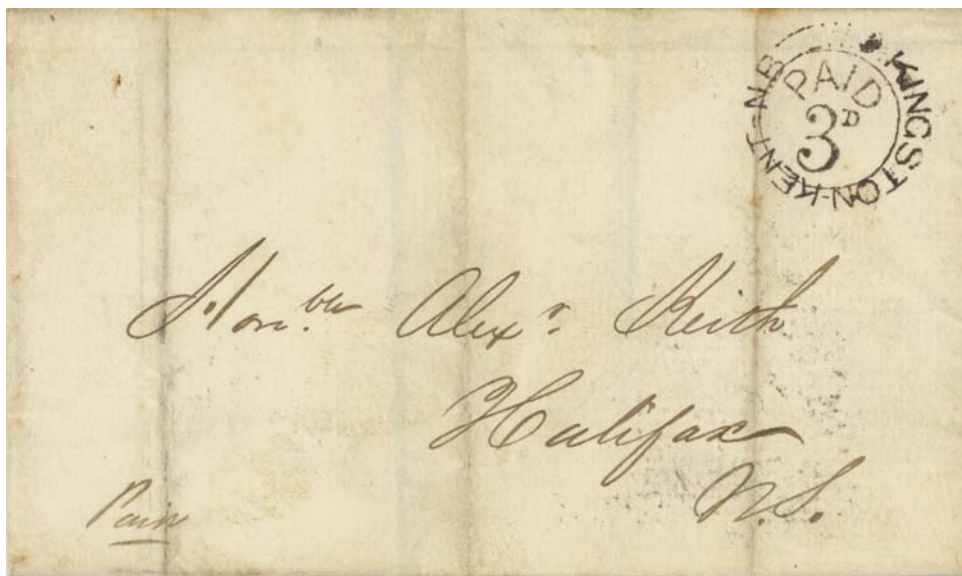 KINGSTON-KENT-N.B
PAID
3D
Hon.ble Alexr. Keith
Halifax
N.S.
Paid